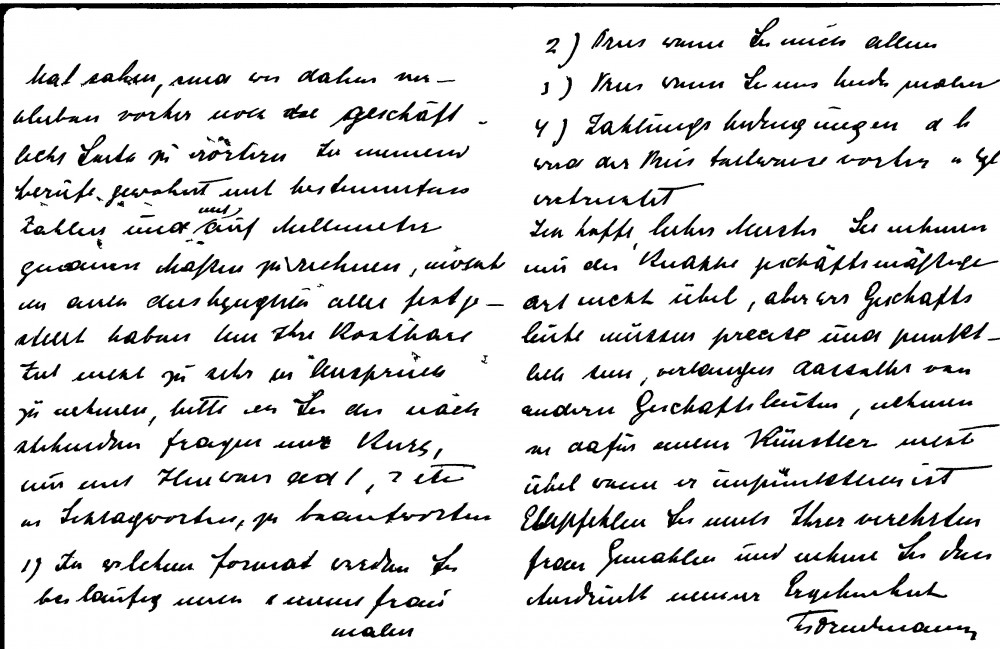 hat sahen, und wir daher
vorher noch die geschäft-
liche Seite zu erörtern In meinem
berufe gewohnt mit bestimmten
Zahlen und mit auf Millimeter
genauen Maßen zu rechnen, möcht
ich auch diesbezüglich alles festge-
stellt haben Um Ihre Kostbare
Zeit nicht zu sehr in Anspruch
zu nehmen, bitte ich Sie die nach
stehenden fragen nur Kurz,
mit ad 1, 2 etc
in Schlagworten, zu beantworten
1) In welchem format werden Sie
beiläufig mich & meine frau
malen
2) Preis wenn Sie mich allein
3) Preis wenn Sie uns beide malen
4) Zahlungsbedingungen d h
wird der Preis teilweise vorher
entrichtet
Ich hoffe, lieber Meister Sie nehmen
mir die Knappe geschäftsmäßige
art nicht übel, aber wir Geschäfts
leute müssen precise und punkt-
lich sein, verlangen dasselbe von
andern Geschäftsleuten, nehmen
es dafür einem Künstler nicht
übel wenn er unpünktlich ist
Empfehlen Sie mich Ihrer verehrten
frau Gemahlin und nehmen Sie den
Ausdruck meiner Ergebenheit